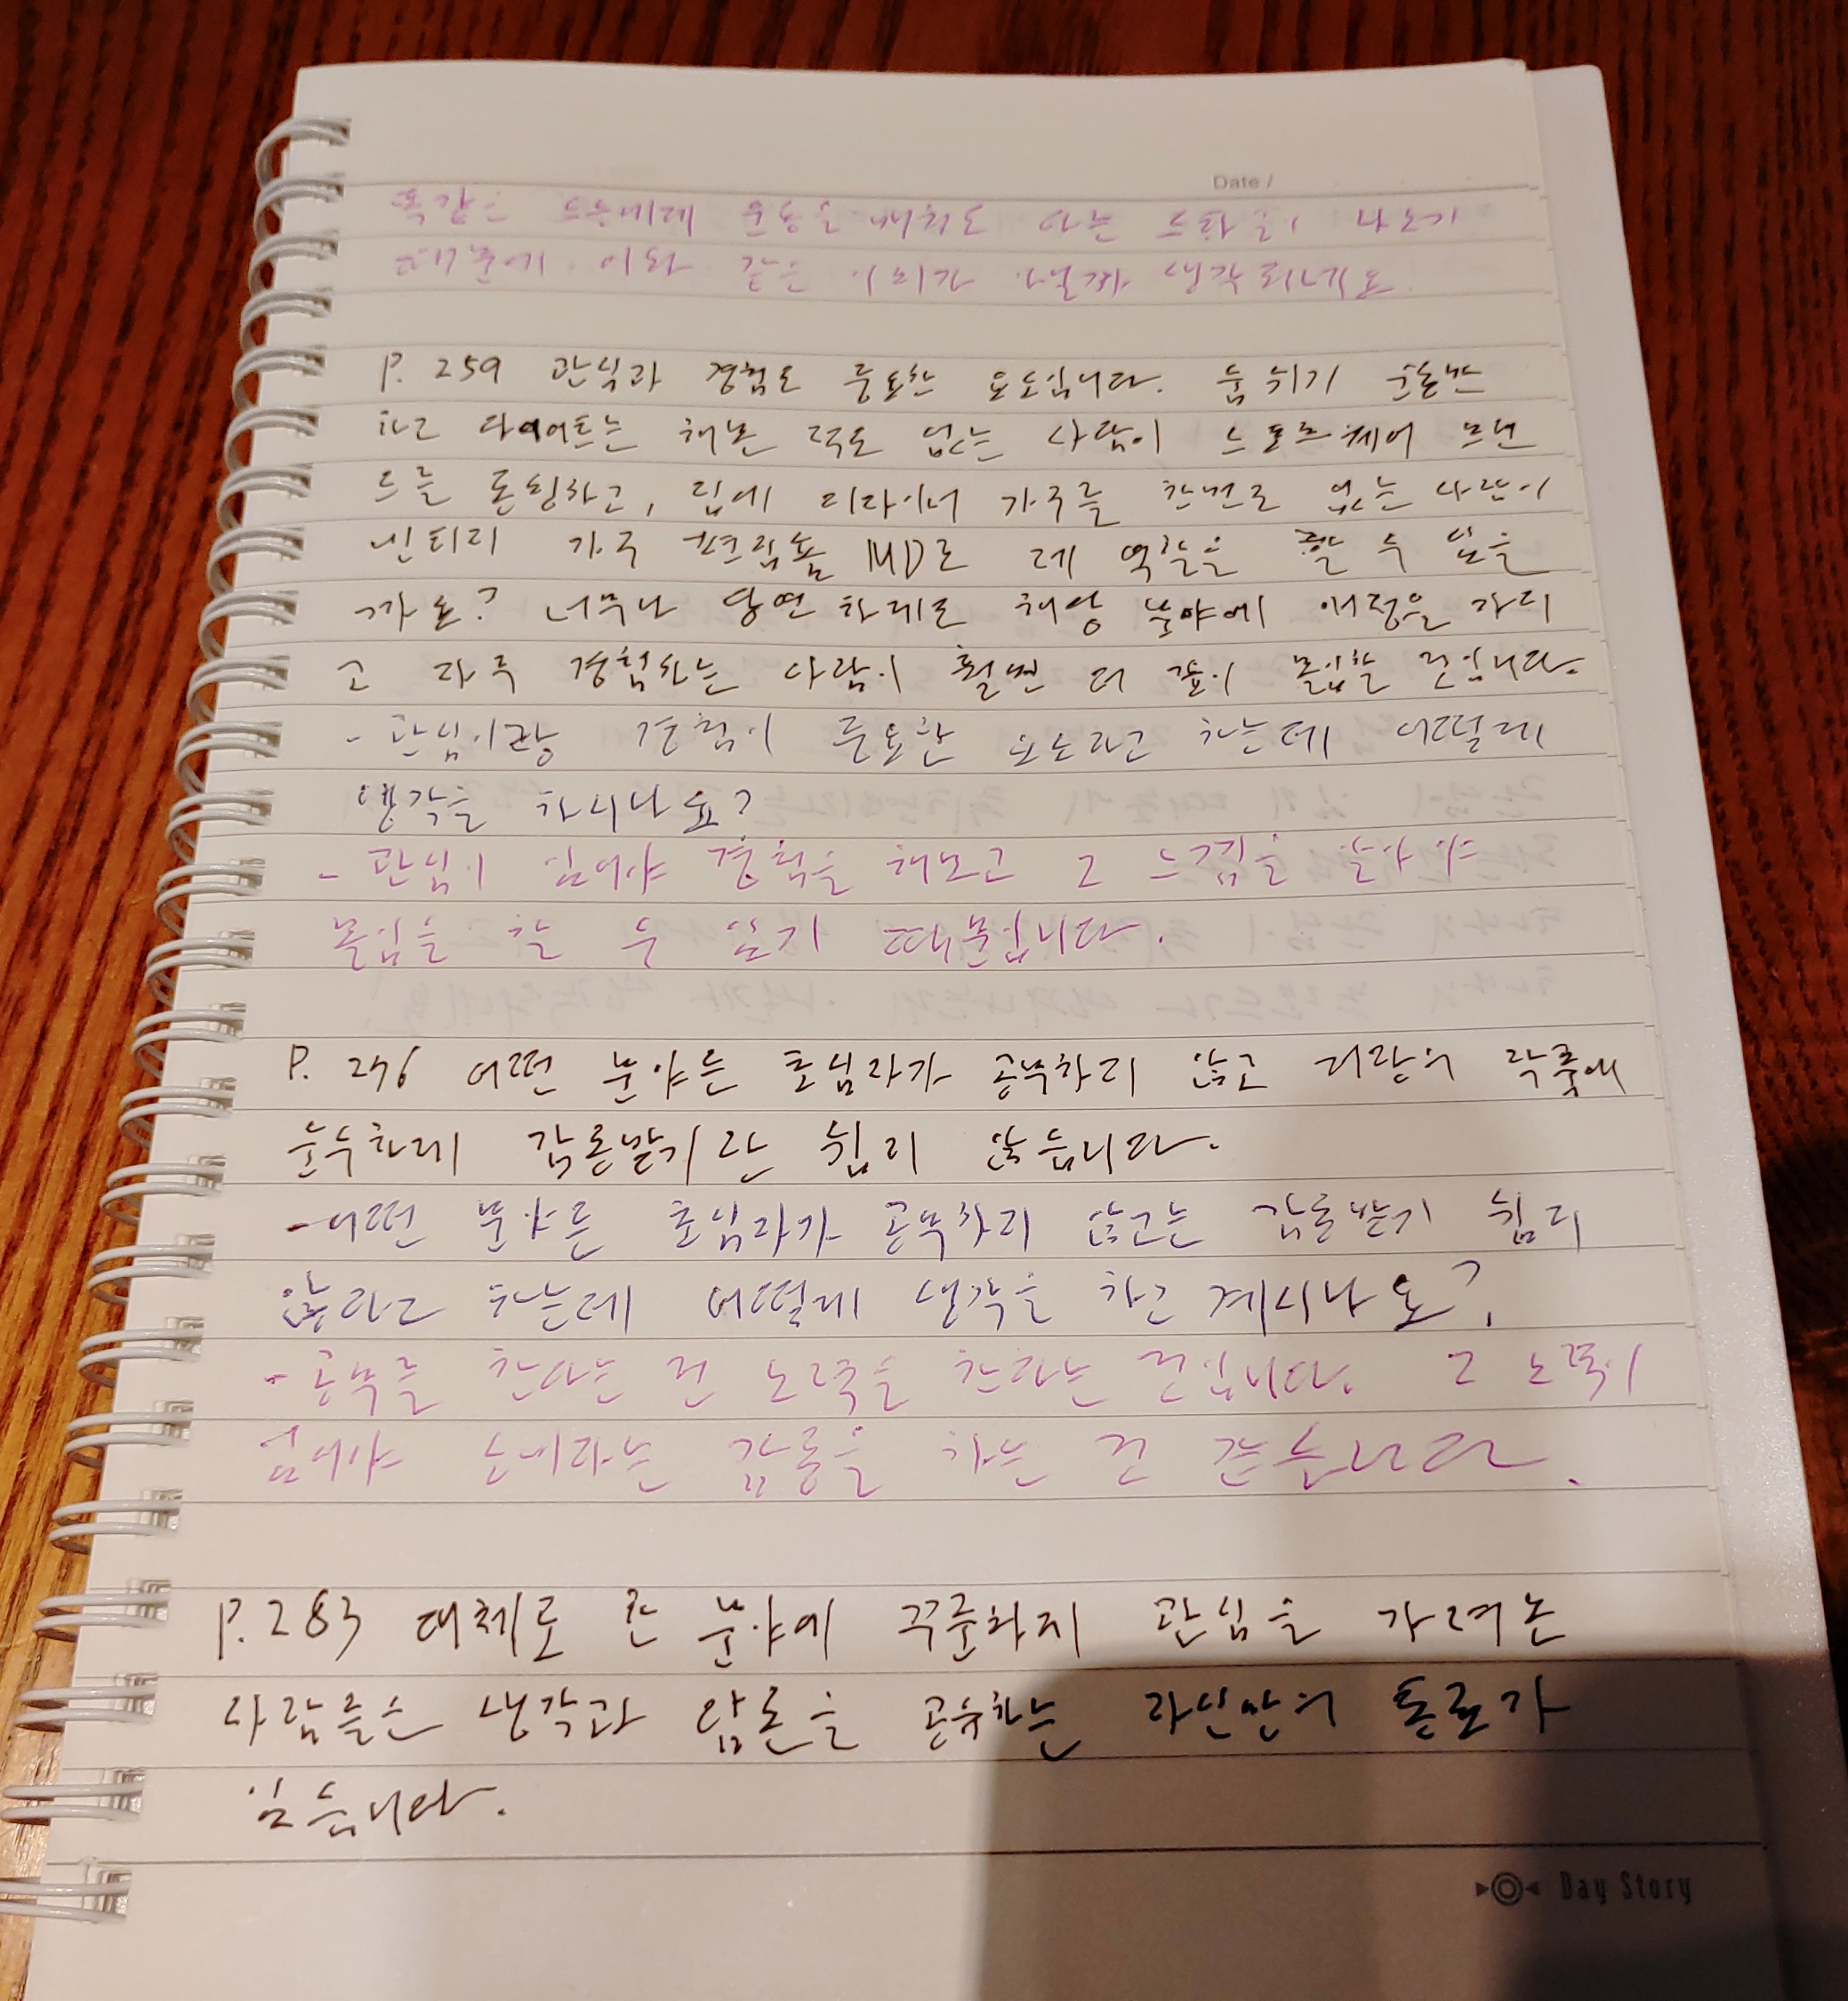 Date /
똑같은 스승에게 운동을 배워도 다른 스타일이 나오기
때문에 이와 같은 의미가 아닐까 생각되네요
P. 259 관심과 경험도 중요한 요소입니다. 숨쉬기 운동만
하고 다이어트는 해본 적도 없는 사람이 스포츠웨어 브랜
드를 론칭하고, 집에 디자이너 가구를 한번도 없는 사람이
빈티지 가구 편집숍 MD로 제 역할을 할 수 있을
까요? 너무나 당연하게도 해당 분야에 애정을 가지
고 자주 경험하는 사람이 훨씬 더 깊이 몰입할 것입니다.
- 관심이랑 경험이 중요한 요소라고 하는데 어떻게
생각을 하시나요?
- 관심이 있어야 경험을 해보고 그 느낌을 알아야
몰입을 할 수 있기 때문입니다.
P. 276 어떤 분야든 초심자가 공부하지 않고 저장의 작품에
순수하게 감동받기란 쉽지 않습니다.
- 어떤 분야든 초심자가 공부하지 않고는 감동받기 쉽지
않다고 하는데 어떻게 생각을 하고 계시나요?
- 공부를 한다는 건 노력을 한다는 것입니다. 그 노력이
있어야 노비라는 감동을 하는 것 같습니다.
P. 283 대체로 한 분야에 꾸준하게 관심을 가져온
사람들은 생각과 담론을 공유하는 자신만의 통로가
있습니다.
Day Story